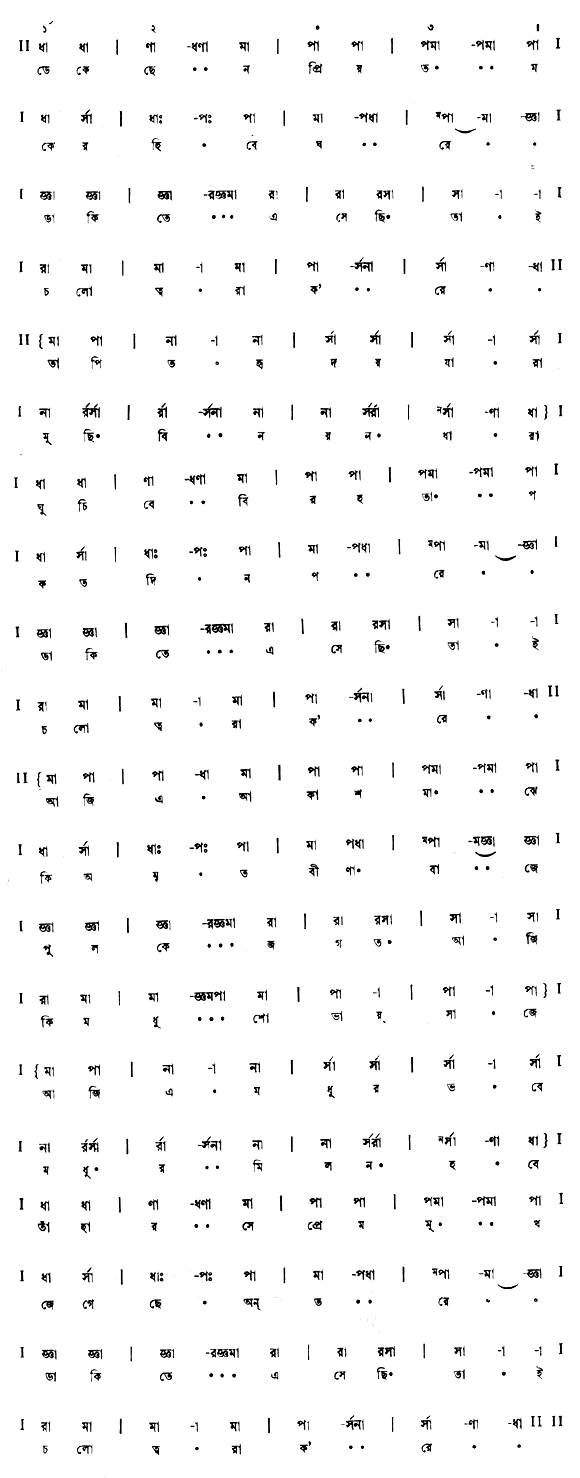 ১´ ২ ০ ৩ II
II ধা ধা | ণা -ধণা মা | পা পা | পমা -পমা পা I
ডে কে ছে • • ন প্রি য় ত • • • ম
I ধা র্সা | ধাঃ -পঃ পা | মা -পধা | ᵐপা -মা -জ্ঞা I
কে র হি • বে ঘ • • রে • •
I জ্ঞা জ্ঞা | জ্ঞা -রজ্ঞমা রা | রা রসা | সা -া -া I
ডা কি তে • • • এ সে ছি• তা • ই
I রা মা | মা -া মা | পা -র্সনা | র্সা -ণা -ধা II
চ লো ত্ব • রা ক’ • • রে • •
II { মা পা | না -া না | র্সা র্সা | র্সা -া র্সা I
তা পি ত • হৃ দ য় যা • রা
I না র্রর্সা | র্রা -র্সনা না | না র্সর্রা | ⁿর্সা -ণা ধা } I
মূ ছি• বি • • ন য় ন • ধা • রা
I ধা ধা | ণা -ধণা মা | পা পা | পমা -পমা পা I
ঘু চি বে • • বি র হ তা• • • প
I ধা র্সা | ধাঃ -পঃ পা | মা -পধা | ᵐপা -মা -জ্ঞা I
ক ত দি • ন প • • রে • •
I জ্ঞা জ্ঞা | জ্ঞা -রজ্ঞমা রা | রা রসা | সা -া -া I
ডা কি তে • • • এ সে ছি• তা • ই
I রা মা | মা -া মা | পা -র্সনা | র্সা -ণা -ধা II
চ লো ত্ব • রা ক’ • • রে • •
II { মা পা | পা -ধা মা | পা পা | পমা -পমা পা I
আ জি এ • আ কা শ মা• • • ঝে
I ধা র্সা | ধাঃ -পঃ পা | মা পধা | ᵐপা -মজ্ঞা জ্ঞা I
কি অ মৃ • ত বী ণা• বা • • জে
I জ্ঞা জ্ঞা | জ্ঞা -রজ্ঞমা রা | রা রসা | সা -া সা I
পু ল কে • • • জ গ ত• আ • জি
I রা মা | মা -জ্ঞমপা মা | পা -া | পা -া পা } I
কি ম ধু • • • শো ভা য়্ সা • জে
I { মা পা | না -া না | র্সা র্সা | র্সা -া র্সা I
আ জি এ • ম ধু র ভ • বে
I না র্রর্সা | র্রা -র্সনা না | না র্সর্রা | ⁿর্সা -ণা ধা } I
ম ধু• র • • মি ল ন• হ • বে
I ধা ধা | ণা -ধণা মা | পা পা | পমা -পমা পা I
তাঁ হা র • • সে প্রে ম মু• • • খ
I ধা র্সা | ধাঃ -পঃ পা | মা -পধা | ᵐপা -মা -জ্ঞা I
জে গে ছে • অন্ ত • • রে • •
I জ্ঞা জ্ঞা | জ্ঞা -রজ্ঞমা রা | রা রসা | সা -া -া I
ডা কি তে • • • এ সে ছি• তা • ই
I রা মা | মা -া মা | পা -র্সনা | র্সা -ণা -ধা II II
চ লো ত্ব • রা ক’ • • রে • •